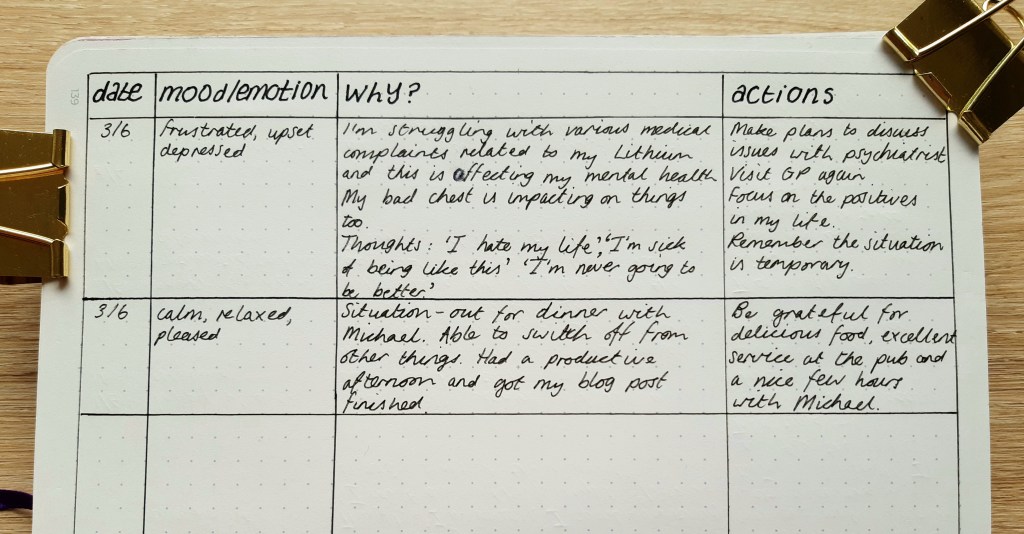 139
date mood/emotion why? actions
3/6
frustrated, upset
depressed
I'm struggling with various medical
complaints related to my Lithium
and this is affecting my mental health
My bad chest is impacting on things
too.
Thoughts: 'I hate my life', 'I'm sick
of being like this' 'I'm never going to
be better.'
Make plans to discuss
issues with psychiatrist
Visit GP again
Focus on the positives
in my life.
Remember the situation
is temporary.
3/6
calm, relaxed,
pleased
Situation - out for dinner with
Michael. Able to switch off from
other things. Had a productive
afternoon and got my blog post
finished.
Be grateful for
delicious food, excellent
service at the pub and
a nice few hours
with Michael.